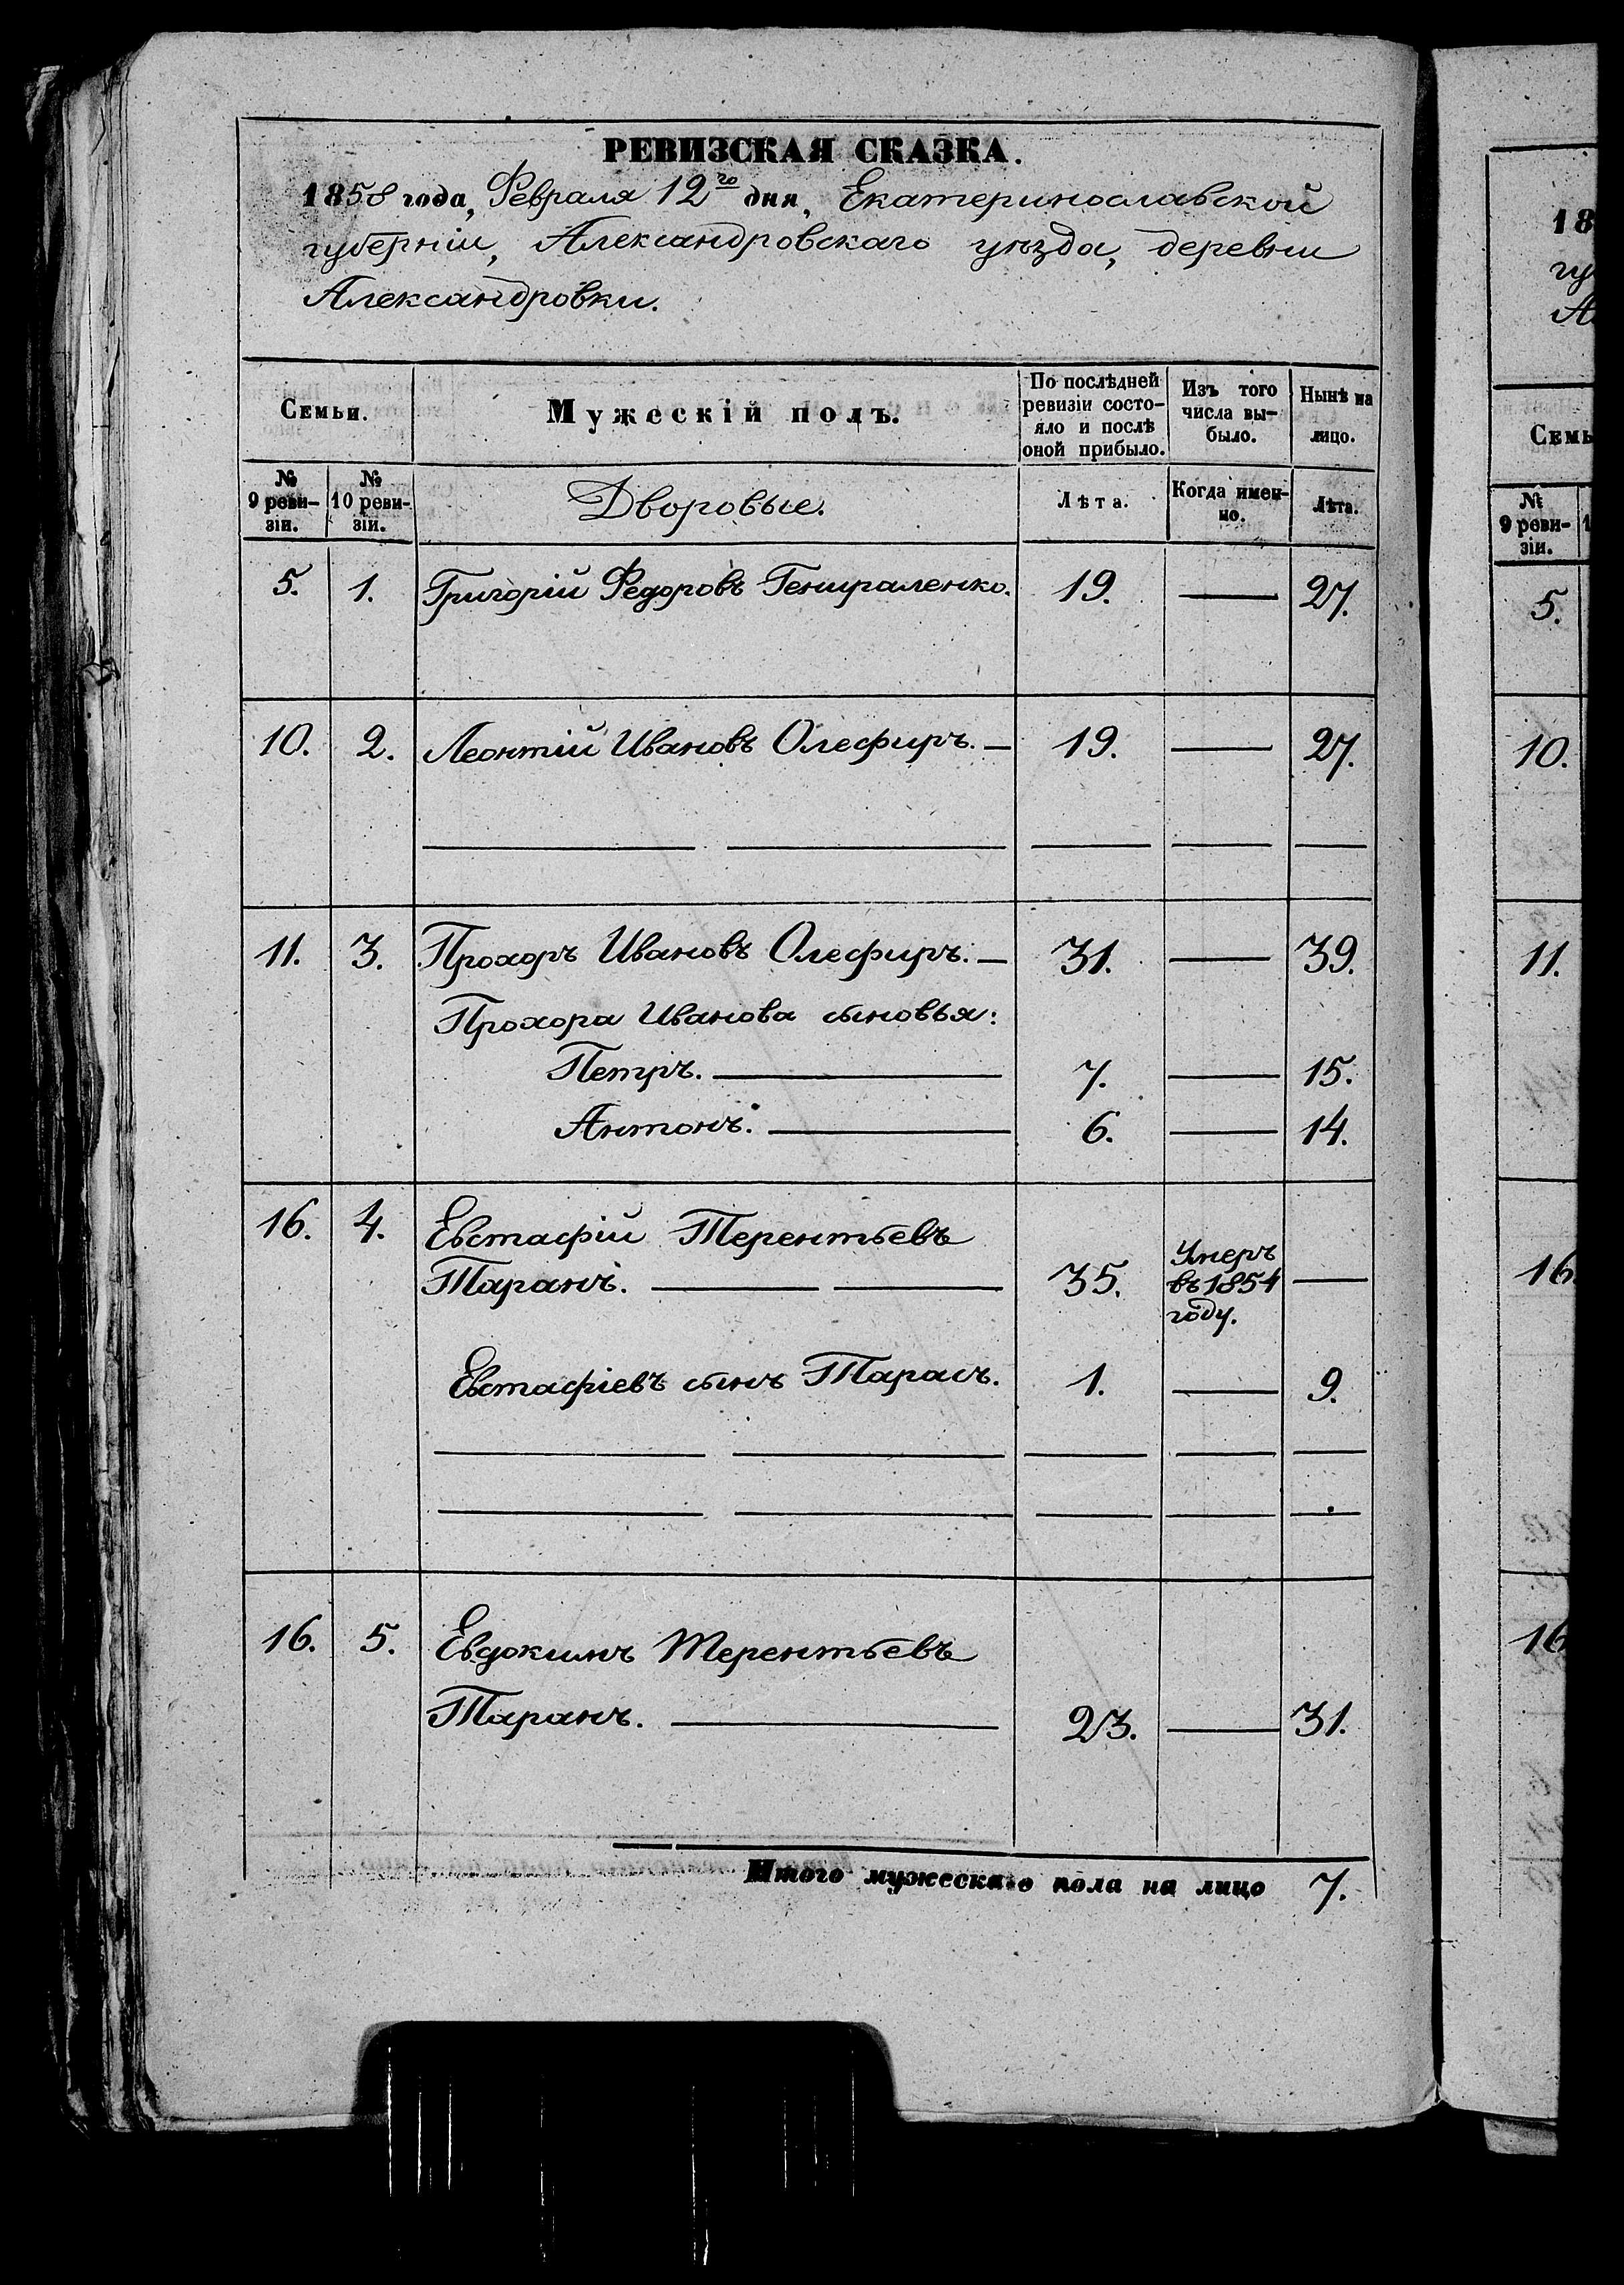 РЕВИЗСКАЯ СКАЗКА.
1858 года, Февраля 12го дня, Екатеринославской
губерніи, Александровскаго уѣзда, деревни
Александровки.
Семьи. Мужескій полъ. По послѣдней ревизіи состо-яло и послѣ оной прибыло. Изъ того числа вы-было. Нынѣ на лицо.
№ 9 реви-зіи. № 10 реви-зіи. Дворовые. Лѣта. Когда имен-но. Лѣта.
5. 1. Григорій Федоровъ Генираленко. 19. — 27.
10. 2. Леонтій Ивановъ Олефиръ. — 19. — 27.
11. 3. Прохоръ Ивановъ Олефиръ. — 31. — 39.
Прохора Иванова сыновья:
Петръ. — 7. — 15.
Антонъ. — 6. — 14.
16. 4. Евстафій Терентьевъ
Таранъ. — 35. Умеръ въ 1854 году. —
Евстафіевъ сынъ Тарасъ. 1. — 9.
16. 5. Евдокимъ Терентьевъ
Таранъ. — 23. — 31.
Итого мужескаго пола на лицо 7.
18
гу
А
Семь
№
9 реви-
зіи.
5.
10.
11.
16.
16.